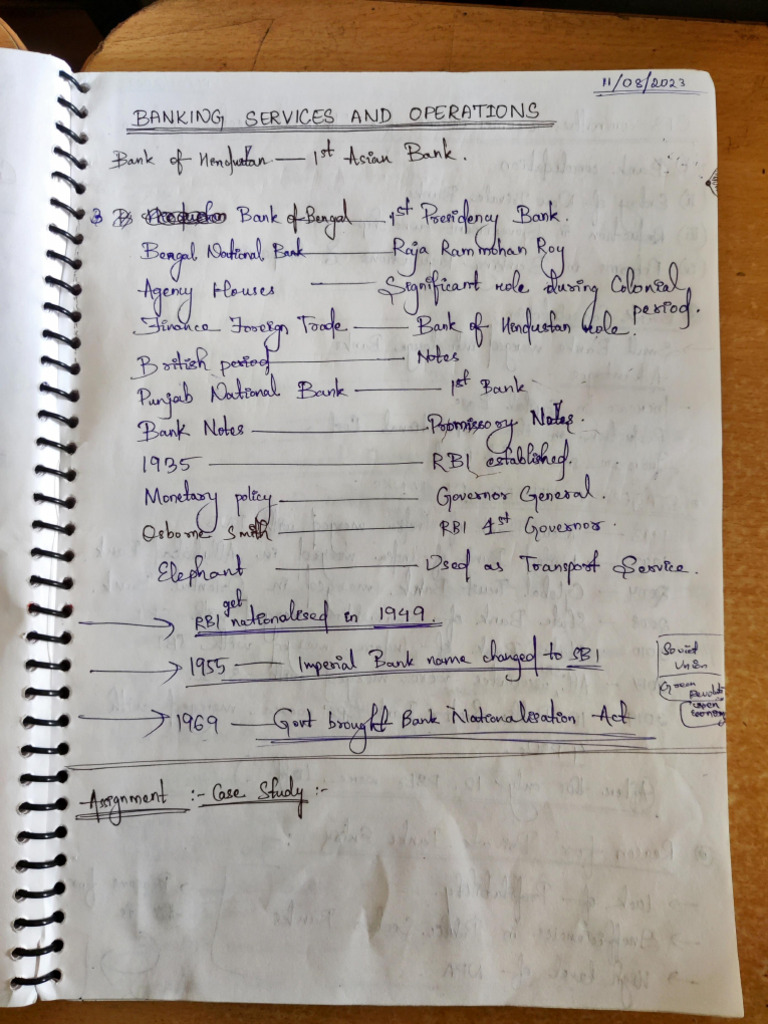 11/08/2023
BANKING SERVICES AND OPERATIONS
Bank of Hendustan — 1st Asian Bank.
3 Bank of Bengal — 1st Presidency Bank.
Bengal National Bank — Raja Rammohan Roy
Agency Houses — Significant role during Colonial period.
Finance Foreign Trade — Bank of Hendustan role.
British period — Notes
Punjab National Bank — 1st Bank
Bank Notes — Promissory Notes.
1935 — RBI established.
Monetary policy — Governor General.
Osborne Smith — RBI 1st Governor.
Elephant — Used as Transport Service.
→ RBI get nationalised in 1949.
→ 1955 — Imperial Bank name changed to SBI
Soviet Union
Green
→ 1969 — Govt brought Bank Nationalisation Act
Assignment :- Case Study :-